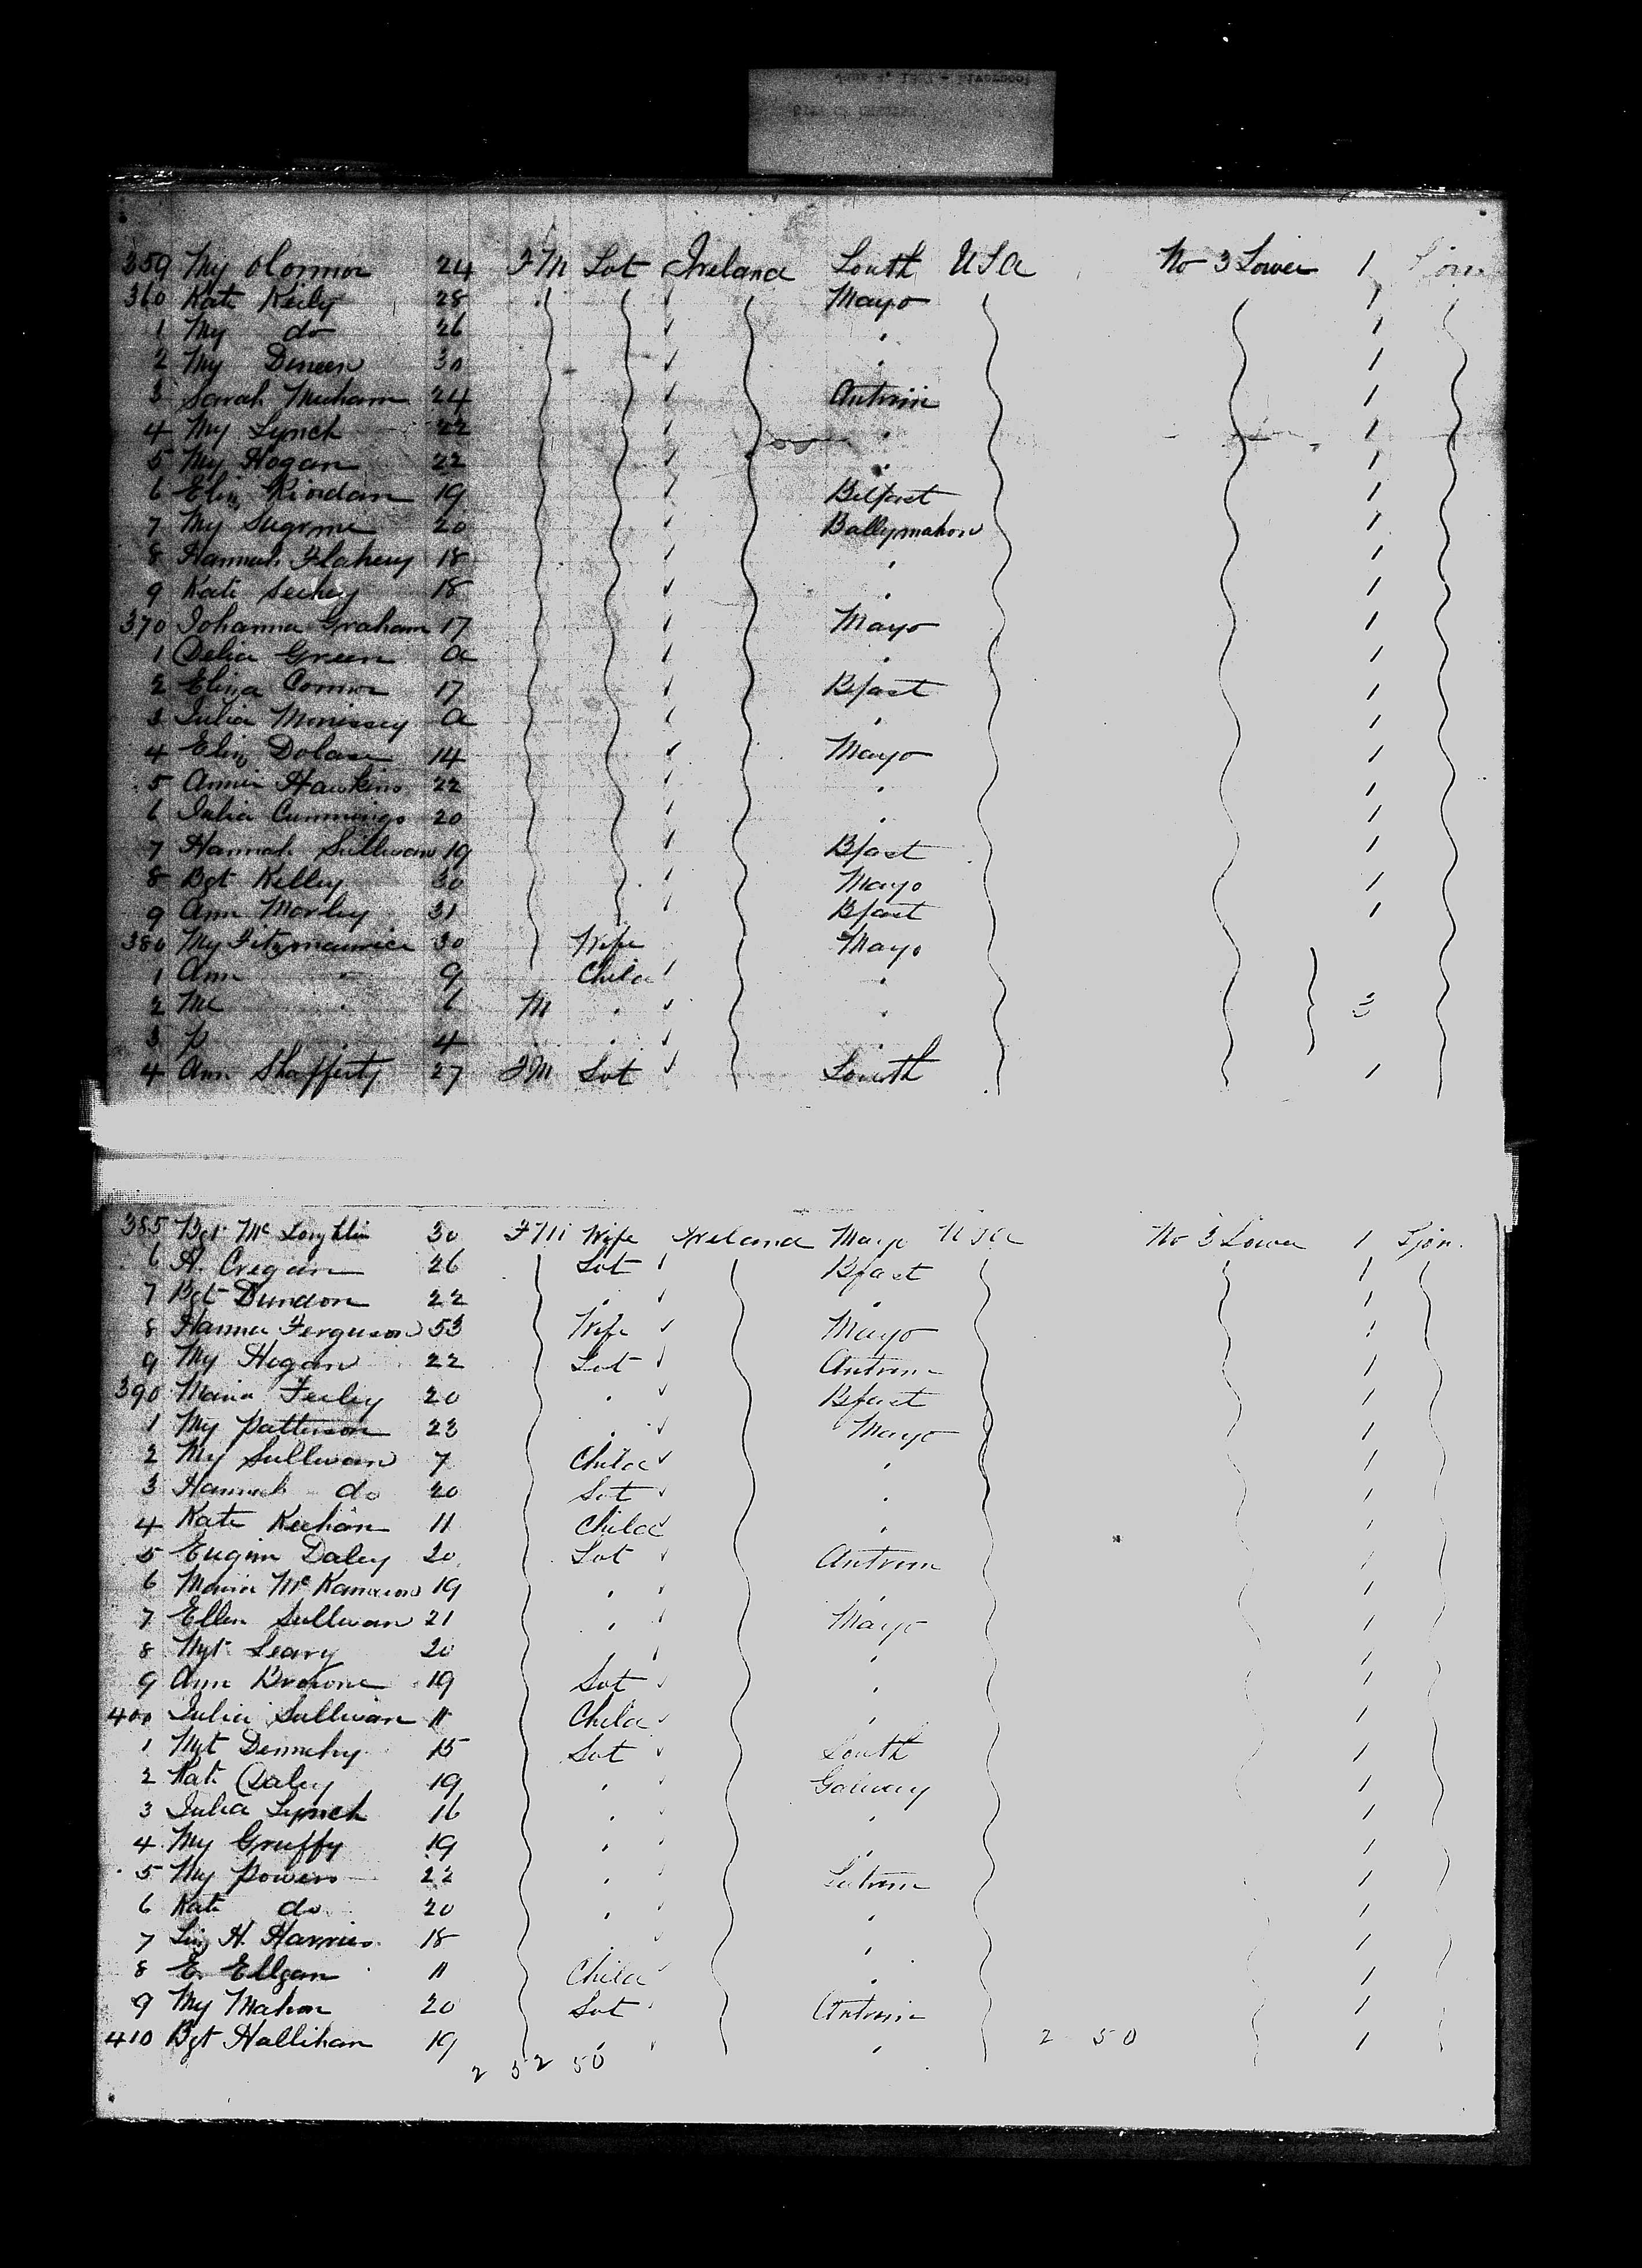 359 My OConnor 24 FM Sot Ireland Louth USA No 3 Lower 1
360 Kate Keily 28 Mayo 1
1 My do 26 " 1
2 My Dineen 30 " 1
3 Sarah 24 Antrim 1
4 My Lynch 22 " 1
5 My Hogan 22 " 1
6 Eliz Riordan 19 Belfast 1
7 My 20 Ballymahon 1
8 Hannah Flahery 18 " 1
9 Kate 18 " 1
370 Johanna Graham 17 Mayo 1
1 Delia Green a " 1
2 Eliza Connor 17 Bfast 1
3 Julia Morissey a " 1
4 Eliz Dolan 14 Mayo 1
5 Annie Hawkins 22 " 1
6 Julia Cummings 20 " 1
7 Hannah Sullivan 19 Bfast 1
8 Bgt Kelley 30 Mayo 1
9 Ann Morley 31 Bfast 1
380 My Fitzmaurice 30 Wife Mayo
1 Ann " 9 Child "
2 Ml " 6 M " " 3
3 P 4 " "
4 Ann Shafferty 27 FM Sot Louth 1
385 Bgt McLoughlin 30 FM Wife Ireland Mayo USA No 3 Lower 1
6 A. Cregan 26 Sot Bfast 1
7 Bgt Dundon 22 " " 1
8 Hanna Ferguson 53 Wife Mayo 1
9 My Hogan 22 Sot Antrim 1
390 Maria Feeley 20 " Bfast 1
1 My Patterson 23 " Mayo 1
2 My Sullivan 7 Child " 1
3 Hannah do 20 Sot " 1
4 Kate Keehan 11 Child " 1
5 Eugin Daley 20 Sot Antrim 1
6 Maria 19 " " 1
7 Ellen Sullivan 21 " Mayo 1
8 Mgt Leary 20 " " 1
9 Ann Browne 19 Sot " 1
400 Julia Sullivan 11 Child " 1
1 Mgt Dennehy 15 Sot Louth 1
2 Kate Daley 19 " Galway 1
3 Julia Lynch 16 " " 1
4 My Gruffy 19 " " 1
5 My Powers 22 " Leitrim 1
6 Kate do 20 " " 1
7 H. Harries 18 " " 1
8 E. Ellgan 11 Child " 1
9 My Mahon 20 Sot Antrim 1
410 Bgt Hallihan 19 " " 2 50 1
2 52 50